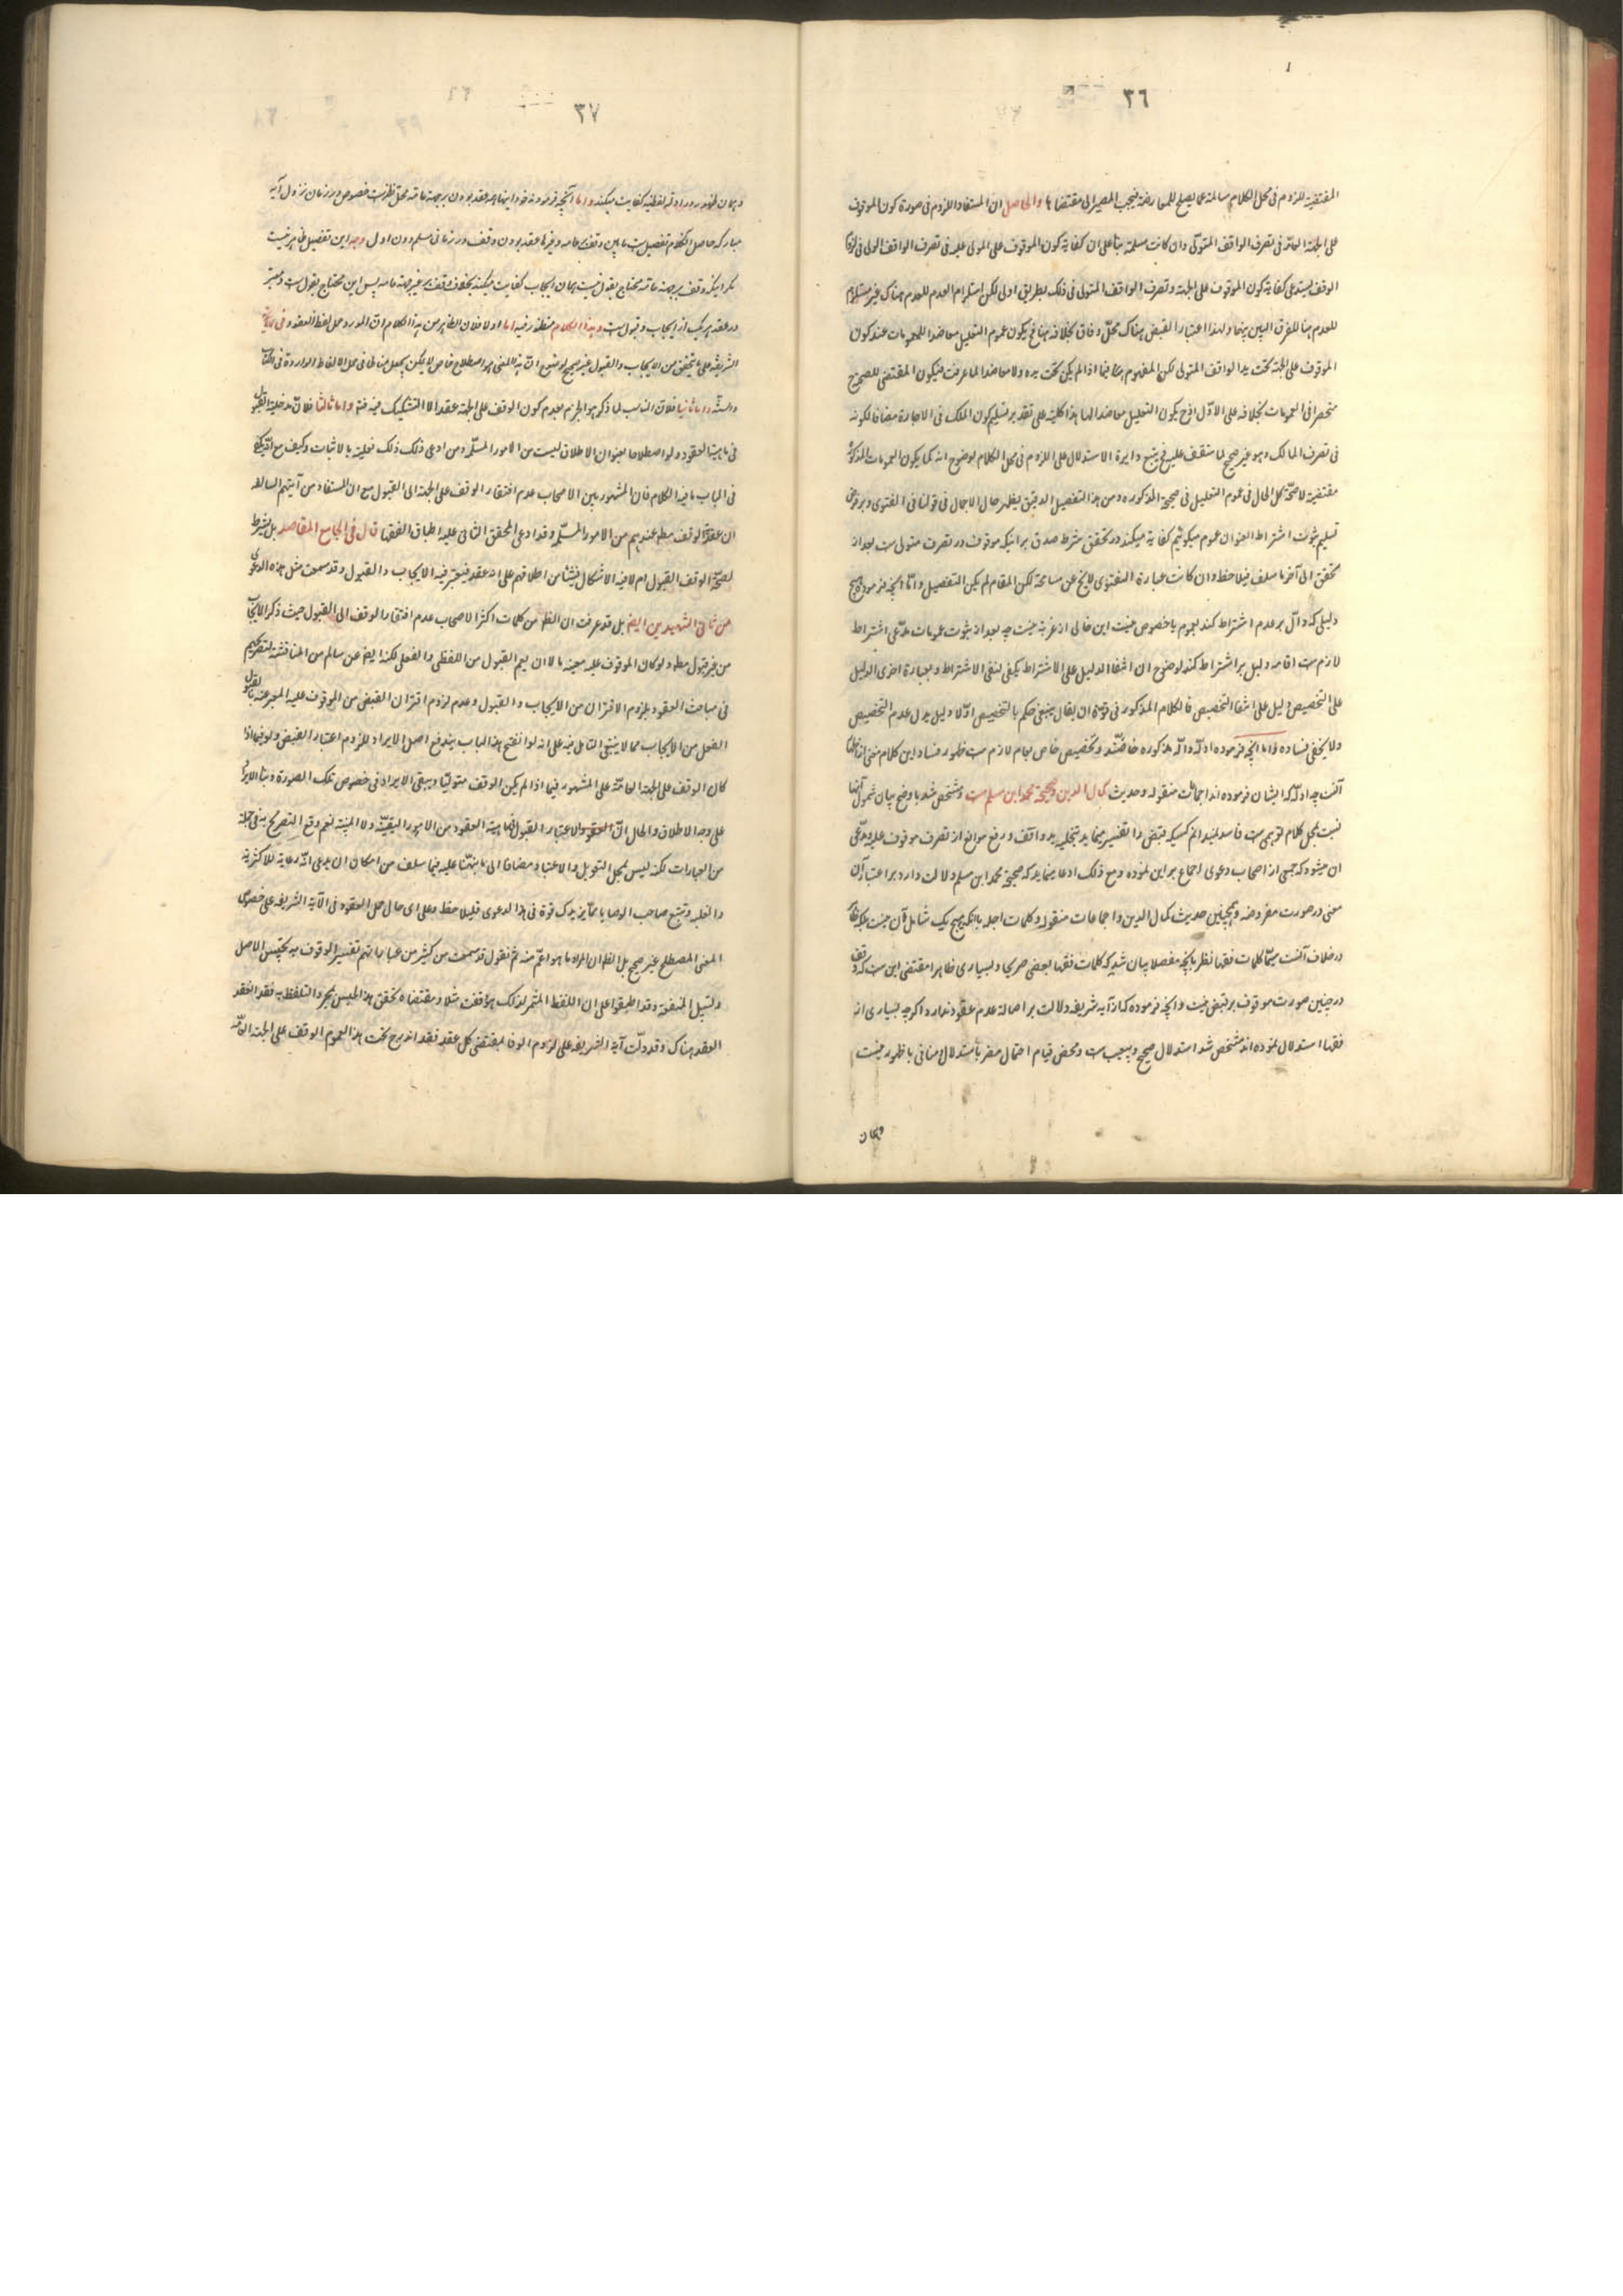 ٣٦
المقتضیة للزوم فی محل الکلام سالمة عما یصلح للمعارضة فیجب المصیر الی مقتضاها والحاصل ان المستفاد اللزوم فی صورة کون الموقوف
علی الجهة العامة فی تصرف الواقف المتولی وان کانت مسلمة بناء علی ان کفایة کون الموقوف علی المولی علیه فی تصرف الواقف الولی فی لزوم
الوقف یستدعی کفایة کون الموقوف علی الجهة وتصرف الواقف المتولی فی ذلک بطریق اولی لکن استلزام العدم للعدم هناک غیر مستلزم
للعدم هنا للفرق البین بینهما ولهذا اعتبار القبض هناک محل وفاق بخلافه هنا فح یکون عموم التعلیل معاضدا للعمومات عند کون
الموقوف علی الجهة تحت ید الواقف المتولی لکن المفهوم هنا فیما اذا لم یکن تحت یده ولا معاضد لما عرفت فیکون المقتضی للصحیح
منحصرا فی العمومات بخلافه علی الاول اذ ح یکون التعلیل معاضدا لها هذا کلیة علی تقدیر تسلیم کون الملک فی الاجارة مضافا لکونه
فی تصرف المالک وهو غیر صحیح لما ستقف علیه فح یتسع دایرة الاستدلال علی اللزوم فی محل الکلام لوضوح انه کما یکون العمومات المذکورة
مقتضیة لصحة محل الحال فی عموم التعلیل فی صحیحة المذکوره ومن هذا التفصیل الدقیق یظهر حال الاجمال فی قولنا فی الفتوی وبر فرض
تسلیم ثبوت اشتراط العنوان عموم میکوئیم کفایة میکند در تحقق شرط صدق بر اینکه موقوف در تصرف متولی ست بعد از
تحقق الی آخر ما سلف فیلاحظ وان کانت عبارة الفتوی لا یخ عن مسامحة لکن المقام لم یکن التفصیل واما آنچه فرموده هیچ
دلیلی که دال بر عدم اشتراط کند بعموم یا خصوص نیست این خالی از غرابة نیست چه بعد از ثبوت عمومات مدعی اشتراط
لازم ست اقامه دلیل بر اشتراط کند لوضوح ان انتفاء الدلیل علی الاشتراط یکفی لنفی الاشتراط وبعبارة اخری الدلیل
علی التخصیص دلیل علی انتفاء التخصیص فالکلام المذکور فی قوة ان یقال ینبغی حکم بالتخصیص اولا دلیل یدل عدم التخصیص
ولا یخفی فساده واما آنچه فرموده ادله دالّه مذکوره خاصّند وتخصیص خاص بعام لازم ست ظهور فساد این کلام مغنی از اظهار
آنست چه ادله که ایشان فرموده اند اجماعات منقوله وحدیث کمال الدین وصحیحة محمد ابن مسلم ست ومشخص شد باوضح بیان شمول آنها
نسبت بمحل کلام توهمی ست فاسد نمیدانم کسیکه قبض را تفسیر مینماید بتخلیه ید واقف و رفع موانع از تصرف موقوف علیه مدعی
آن میشود که جمعی از اصحاب دعوی اجماع بر این نموده ومع ذلک ادعا مینماید که صحیحة محمد ابن مسلم دلالت دارد بر اعتبار آن
معنی در صورت مفروضه وهمچنین حدیث کمال الدین واجماعات منقوله وکلمات اجله با آنکه هیچ یک شامل آن نیست بلکه ظاهر
در خلاف آنست سیّما کلمات فقها نظر بآنچه مفصلا بیان شد که کلمات فقها بعضی صریحا وبسیاری ظاهرا مقتضی این ست که وقف
در چنین صورت موقوف بر قبض نیست وآنچه فرموده که از آیه شریفه دلالت بر اصالة عدم عقود ندارد اکرچه بسیاری از
فقها استدلال نموده اند مشخص شد استدلال صحیح وبیعیب ست ومحض قیام احتمال مضر باستدلال ومنافی با ظهور نیست
وهمان
٣٧
وهمان ظهور در ادله لفظیه کفایت میکند واما آنچه فرموده خود اینها هم عقد بودن بر جهة عامة محل نظر ست خصوص در زمان نزول آیه
مبارکه حاصل الکلام تفصیل ست مابین وقف بر عامه وغیرها عقد بودن وقف در زمانی مسلم دون اول وجه این تفصیل ظاهر نیست
مکر اینکه وقف بر جهة عامة محتاج بقبول نیست همان ایجاب کفایت میکند بخلاف وقف بر غیر جهة عامه پس این محتاج بقبول ست ومعتبر
در عقد ترکیب از ایجاب وقبول ست وهذا الکلام منظور فیه اما اولا فلان الظاهر من هذا الکلام ان المورد حمل لفظ العقود فی الآیة
الشریفة علی ما یتحقق من الایجاب والقبول غیر صحیح لوضوح ان هذا المعنی هو اصطلاح خاص لا یمکن بجعل مناطا فی حمل الالفاظ الواردة فی الکتاب
والسنة واما ثانیا فلان المناسب لما ذکر هو الجزم بعدم کون الوقف علی الجهة عقدا لا التشکیک فیه فتم واما ثالثا فلان مدخلیة القبول
فی ماهیة العقود ولو اصطلاحا بعنوان الاطلاق لیست من الامور المسلمة ومن ادعی ذلک فعلیه بالاثبات وکیف مع
فی الباب ما فیه الکلام فان المشهور بین الاصحاب عدم افتقار الوقف علی الجهة الی القبول مع ان المستفاد من آیتهم السالفه
ان عقدیة الوقف مطلقا عندهم من الامور المسلمة وقد ادعی المحقق الثانی علیه اطباق الفقها قال فی الجامع المقاصد بل یشترط
لصحة الوقف القبول ام لا فیه الاشکال ینشأ من اطلاقهم علی انه عقد فیعتبر فیه الایجاب والقبول وقد سمعت مثل هذه الدعوی
من ثانی الشهیدین ایضا بل قد عرفت ان الظاهر من کلمات اکثر الاصحاب عدم افتقار الوقف الی القبول حیث ذکر الایجاب
من غیر قبول مطلقا ولو کان الموقوف علیه معینه الا ان یعم القبول من اللفظی والفعلی لکنه ایضا عن سالم من المناقشة لتصریحهم
فی مباحث العقود بلزوم الاقتران من الایجاب والقبول وعدم لزوم اقتران القبض من الموقوف علیه المعبر عنه بالقبول
الفعل من الایجاب مما لا ینبغی التامل فیه علی انه لو انفتح هذا الباب یندفع اصل الایراد للزوم اعتبار القبض ولو فیما اذا
کان الوقف علی الجهة العامة علی المشهور فیما اذا لم یکن الوقف متولیا ویبقی الایراد فی خصوص تلک الصورة وبناء الایراد
علی وجه الاطلاق والحال ان الاعتبار القبول فی ماهیة العقود من الامور الیقینیة ولا المبینة نعم وقع التصریح به فی جملة
من العبارات لکنه لیس بمحل التعویل والاعتماد مضافا الی ما نبهنا علیه فیما سلف من امکان ان یدعی انه رعایة للاکثریة
والغلبة وتتبع صاحب الوصایا مما یزیدک قوة فی هذا الدعوی فلیلاحظ وعلی ای حال حمل العقود فی الآیة الشریفه علی خصوص
المعنی المصطلح غیر صحیح بل الظاهر ان المراد ما هو اعم منه ثم نقول قد سمعت من کثیر من عباراتهم تفسیر الوقوف به تحبیس الاصل
وتسبیل المنفعة وقد اطبقوا علی ان اللفظ المثمر لذلک هو وقفت مثلا ومقتضاه تحقق هذا الحبس بمجرد التلفظ به فقد العقد
العقد هناک وقد دلّت آیة الشریفه علی لزوم الوفا بمقتضی کل عقد فقد اندرج تحت هذا العموم الوقف علی الجهة العامة